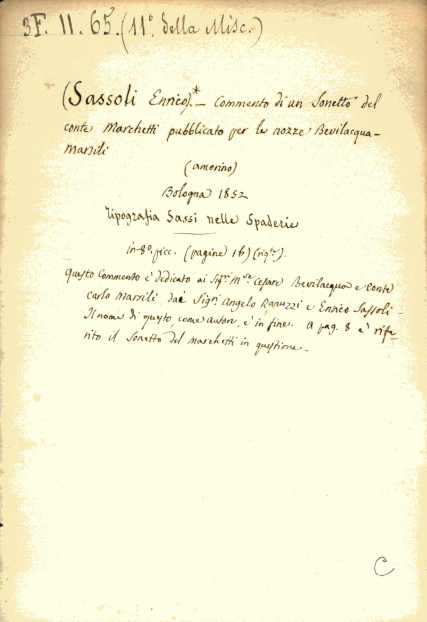 3F. II. 65. (11º. della Misc.)
(Sassoli Enrico)*. — Commento di un Sonetto del
conte Marchetti pubblicato per le nozze Bevilacqua-
Marsili
(amorino)
Bologna 1852
Tipografia Sassi nelle Spaderie
in-8º. picc. (pagine 16) (
Questo Commento è dedicato ai Sigri. Mse. Cesare Bevilacqua e Conte
Carlo Marsili dai Sigri Angelo Ranuzzi e Enrico Sassoli.
Il nome di questo, come autore, è in fine. A pag. 8 è rife-
rito il Sonetto del Marchetti in questione.
C